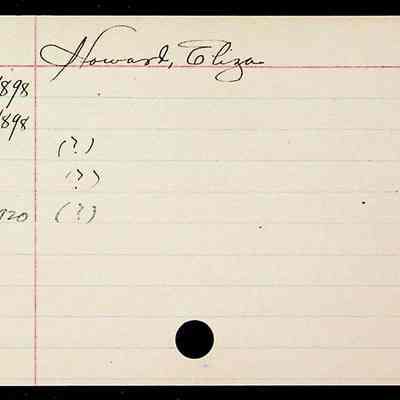 Howard, Eliza
1898
1898
(?)
(?)
920 (?)